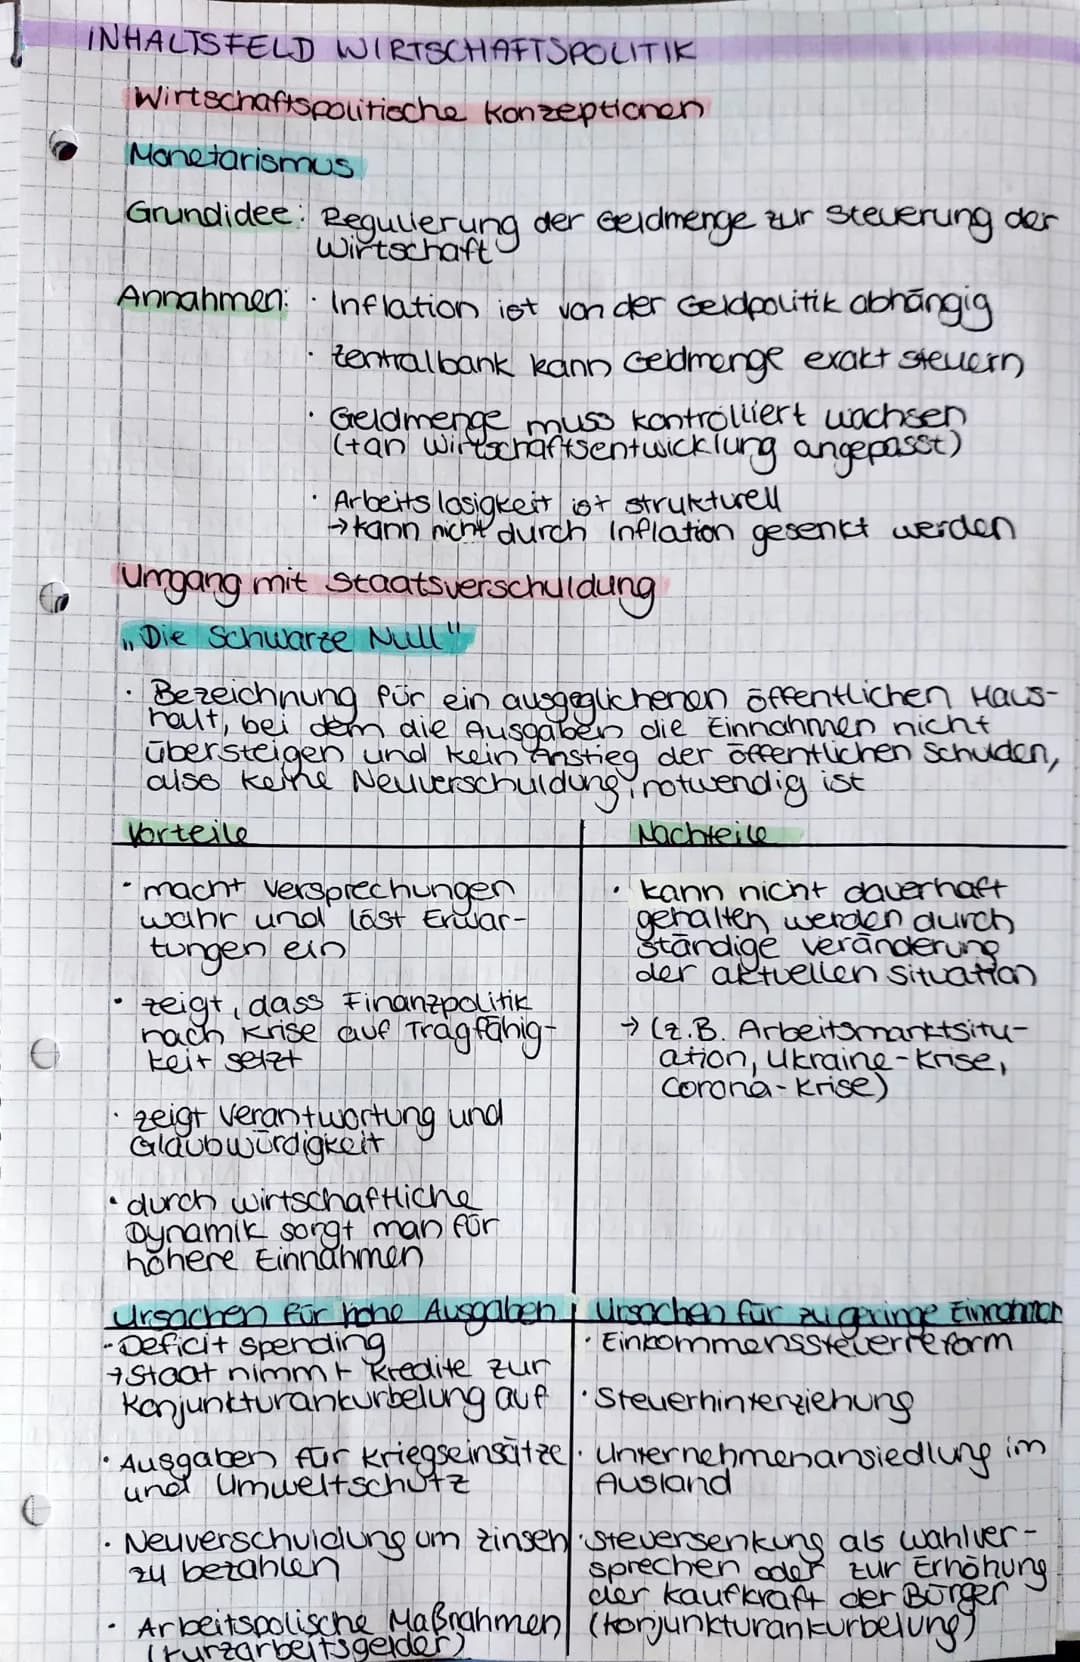 INHALTSFELD WIRTSCHAFTSPOLITIK
Wirtschaftspolitische Konzeptionen
Monetarismus
Grundidee: Regulierung der Geldmenge zur Steuerung der
Wirtschaft
Annahmen: · Inflation ist von der Geldpolitik abhängig
· Zentralbank kann Geldmenge exakt steuern
· Geldmenge muss kontrolliert wachsen
(+an Wirtschaftsentwicklung angepasst)
· Arbeitslosigkeit ist strukturell
→ kann nicht durch Inflation gesenkt werden
Umgang mit Staatsverschuldung
„Die Schwarze Null"
· Bezeichnung für ein ausgeglichenen öffentlichen Haus-
halt, bei dem die Ausgaben die Einnahmen nicht
übersteigen und kein Anstieg der öffentlichen Schulden,
also keine Neuverschuldung, notwendig ist
Vorteile
· macht Versprechungen
wahr und löst Erwar-
tungen ein
· zeigt, dass Finanzpolitik
nach Krise auf Tragfähig-
keit setzt
· zeigt Verantwortung und
Glaubwürdigkeit
· durch wirtschaftliche
Dynamik sorgt man für
höhere Einnahmen
Nachteile
· kann nicht dauerhaft
gehalten werden durch
ständige Veränderung
der aktuellen Situation
→ (z.B. Arbeitsmarktsitu-
ation, Ukraine-Krise,
Corona-Krise)
Ursachen für hohe Ausgaben
· Deficit spending
→ Staat nimmt Kredite zur
Konjunkturankurbelung auf
· Ausgaben für Kriegseinsätze
und Umweltschutz
· Neuverschuldung um Zinsen
zu bezahlen
· Arbeitspolische Maßnahmen
(Kurzarbeitsgelder)
Ursachen für zu geringe Einnahmen
· Einkommenssteuerreform
· Steuerhinterziehung
· Unternehmenansiedlung im
Ausland
· Steuersenkung als Wahlver-
sprechen oder zur Erhöhung
der Kaufkraft der Bürger
(Konjunkturankurbelung)